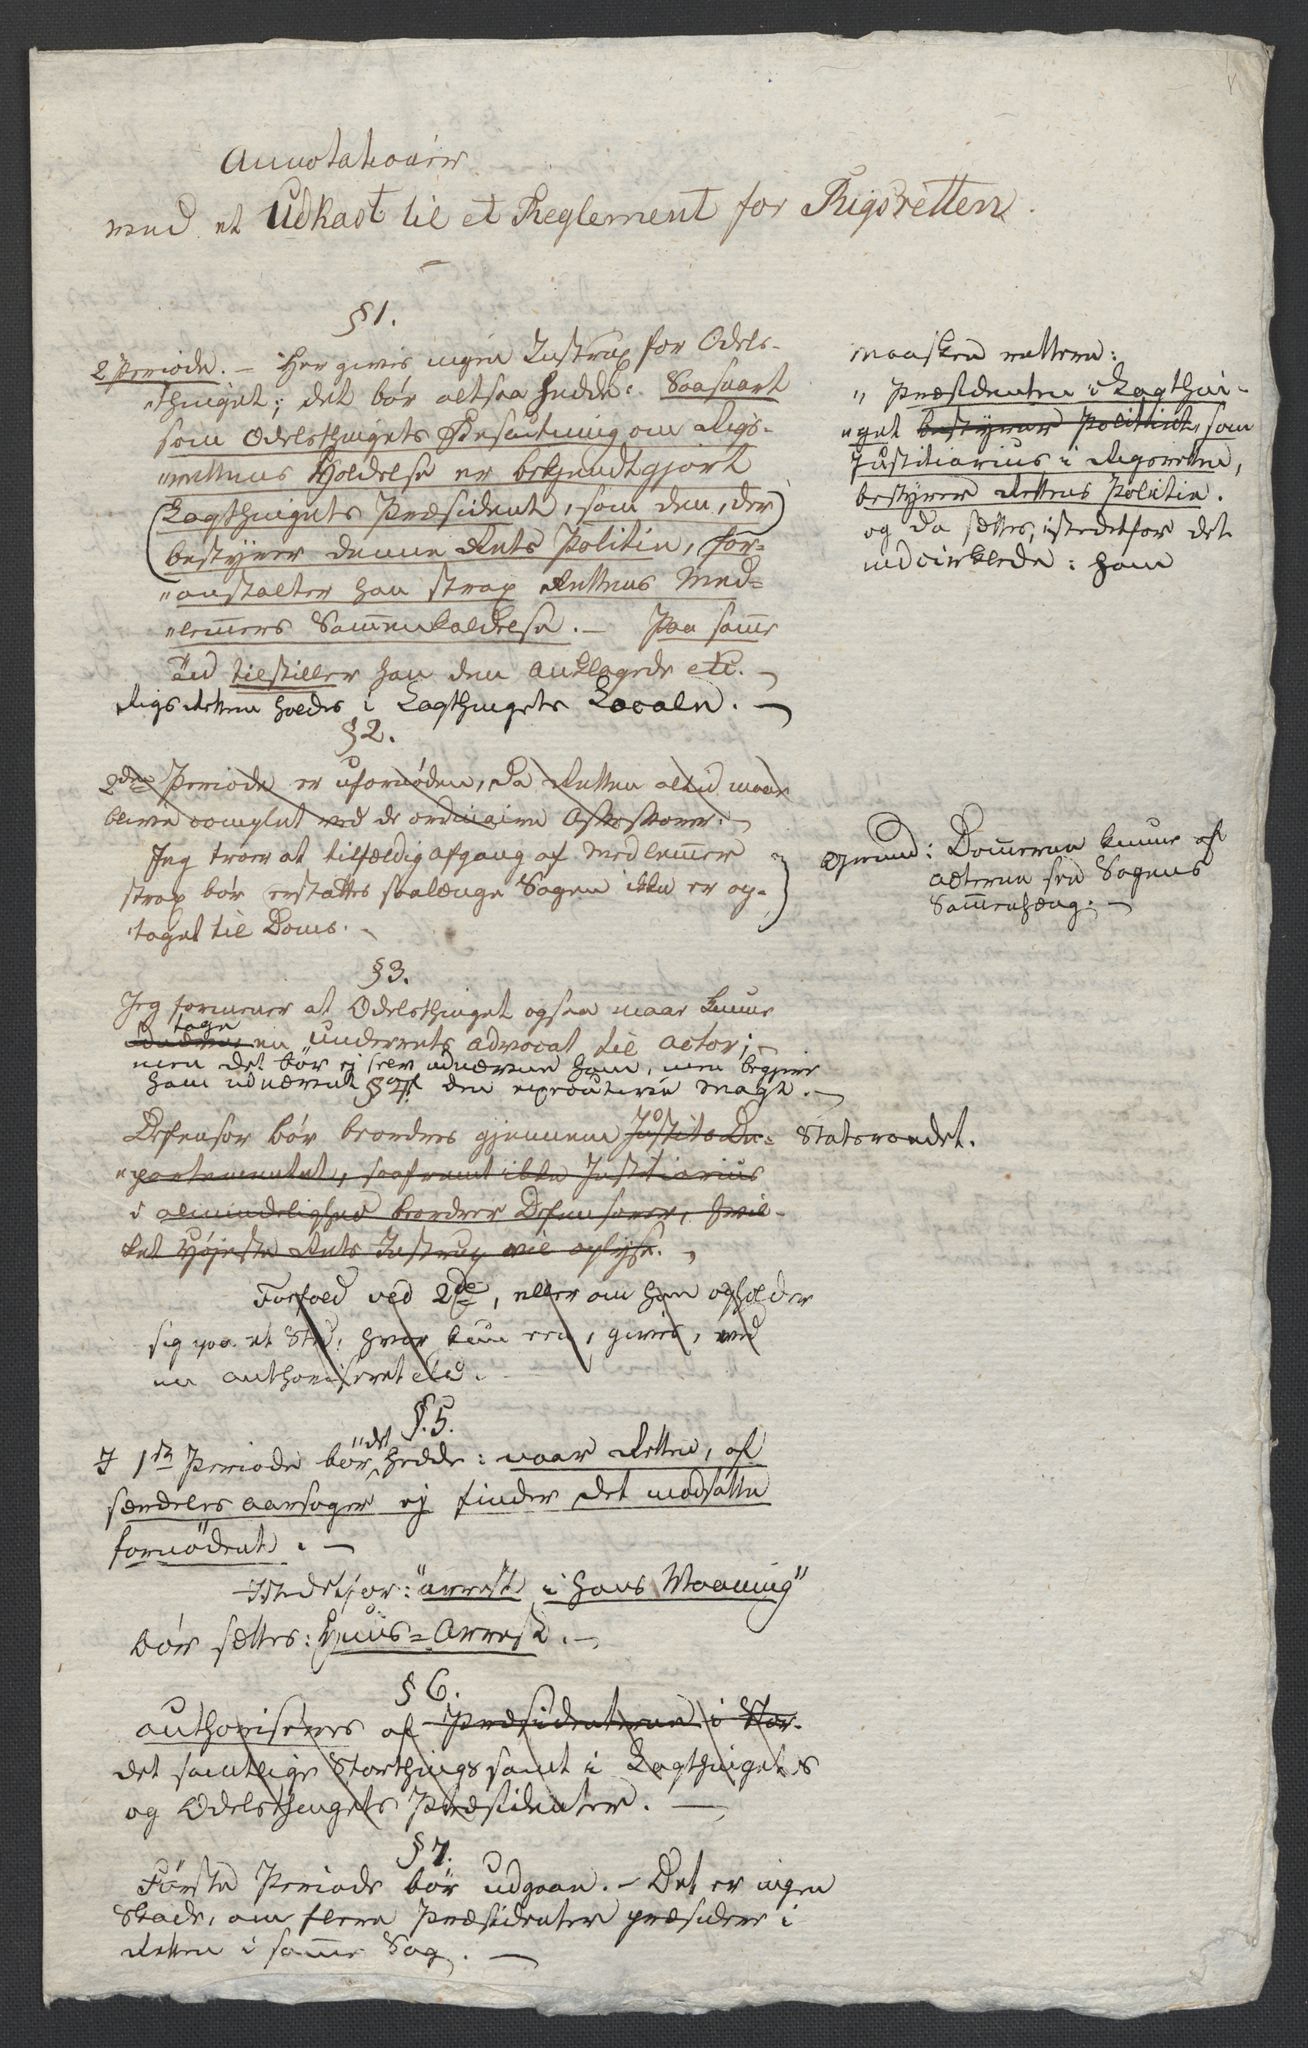 Annotationer
med et Udkast til et Reglement for Rigsretten.
§1.
2 Periode. — Her gives ingen Instrux for Odels-
"thinget; det bør altsaa hedde: Saasnart
som Odelsthingets Beslutning om Rigs-
"rettens Holdelse er bekjendtgjort
(Lagthingets Præsident, som den, der
bestyrer denne Rets Politie,) for-
"anstalter han strax Rettens Med-
"lemmers Sammenkaldelse. — Paa samme
Tid tilstiller han den Anklagede etc. —
Rigs Retten holdes i Lagthingets Locale. —
maaskee rettere:
" Præsidenten i Lagthin-
"get bestyrer Politiet, som
Justitiarius i Rigsretten,
bestyrer Rettens Politie.
og da sættes, istedetfor det
indcirklede: ham
§2.
2den Periode er ufornøden, da Retten altid maae
blive complet ved de ordinaire Assessorer. —
Jeg troer at tilfældig afgang af Medlemmer
strax bør erstattes saalænge Sagen ikke er op-
"taget til Doms. —
Grund: Dommerne kunne af
Acterne see Sagens
Sammenhæng. —
§3.
Jeg formener at Odelsthinget ogsaa maae kunne
tage
en Underrets Advocat til Actor; —
men det bør ej selv udnævne ham, men begjere
ham udnævnt af den executive Magt. —
§4.
Defensor bør beordres gjennem Justits De-
"partementet, saafremt ikke Justitiarius
i Almindelighed beordrer Defensorer, hvil-
ket Højeste Rets Instrux vil oplyse. —
Statsraadet.
Forfald ved 2de, eller om han opholder
sig paa et Sted, hvor kun een, gives, ved
en authoriseret etc.
§.5.
I 1ste Periode bør det hedde: naar Retten, af
særdeles aarsager ej finder det modsatte
fornødent. —
Istedetfor: "arrest i hans Vaaning"
bør sættes: Huus-Arrest. —
§6.
authoriseres af Præsidenterne i Stor-
det samtlige Storthings samt i Lagthingets
og Odelsthingets Præsidenter. —
§7.
Første Periode bør udgaae. — Det er ingen
Skade, om flere Præsidenter præsidere i
Retten i samme Sag. —